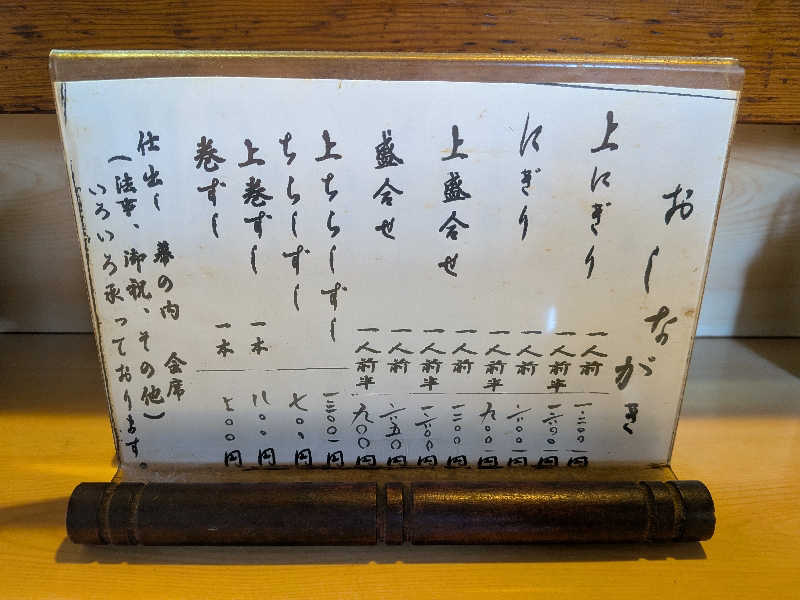 おしながき
上にぎり 一人前 一、二〇〇円
一人前半 一、六〇〇円
にぎり 一人前 六〇〇円
一人前半 九〇〇円
上盛合せ 一人前 一、二〇〇円
一人前半 一、六〇〇円
盛合せ 一人前 六五〇円
一人前半 九〇〇円
上ちらしずし 円
ちらしずし 七〇〇円
上巻ずし 一本 八〇〇円
巻ずし 一本 円
仕出し 幕の内 会席
(法事、御祝、その他)
いろいろ承っております。